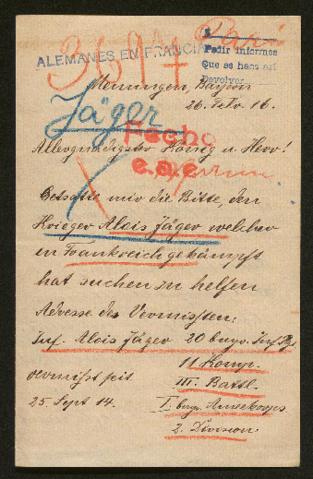 ALEMANES EN FRANCIA
Pedir informes
Que es hans así
Devolver
Memmingen, Bayern
26. Febr. 16.
Jäger
Hecho
Allergnädigster König u. Herr!
c.a.e.
Gestatte mir die Bitte, den
Krieger Alois Jäger welcher
in Frankreich gekämpft
hat suchen zu helfen
Adresse des Vermissten:
Inf. Alois Jäger 20 bayr. Inf. Rgt.
11 Komp.
vermisst seit III. Battl.
25 Sept 14. I. bayr. Armeekorps
2. Division